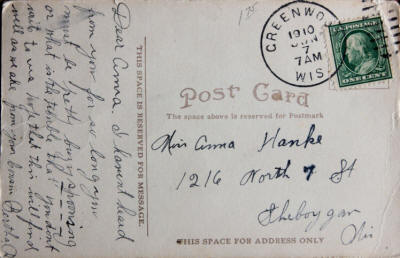 Dear Anna. I havent heard
from you for so long you
must be pretty busy spooning
or what is the trouble that you dont
write to me hope that this will find
well as we are from your cousin Bertha
THIS SPACE IS RESERVED FOR MESSAGE.
135
GREENWOO
1910
JUN
7
7AM
WIS.
U.S. POSTAGE
ONE CENT
Post Card
The space above is reserved for Postmark
Miss Anna Hanke
1216 North 7 St
Sheboygan
Wis
THIS SPACE FOR ADDRESS ONLY